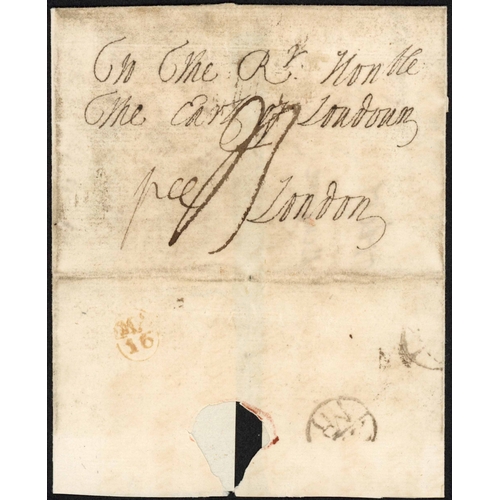 To The Rt. Honble
The Earl of Loudoun
London
MA
16